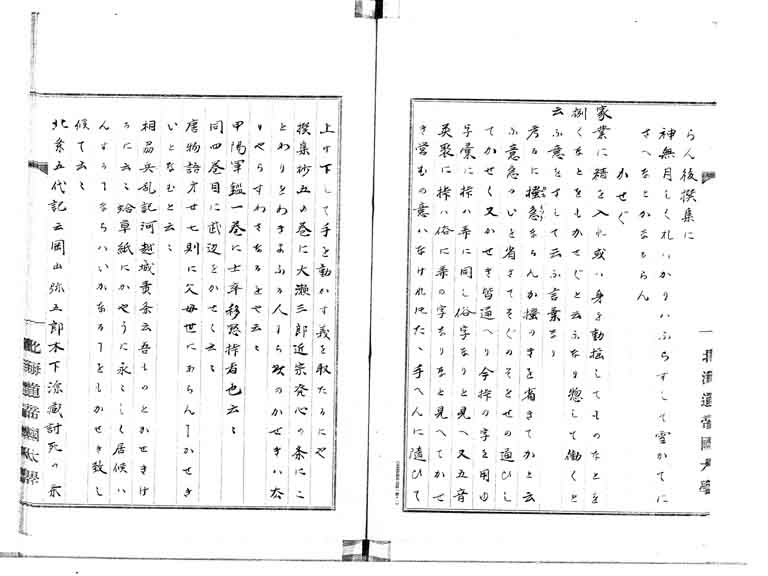 らん後撰集に
神無月しくれはかりはふらすして雪かてに
さへなとかなるらん
かせぐ
家業に精を入れ或は身を動揺してものなとを
捌くなとをもかせぐと云ふなり惣して働くと
云ふ意をすして云ふ言葉なり
考るに擾急ならんか擾のきを省きてかと云
ふ意急のいと省きてそぐのそとせの通ひし
てかせく又かせき皆通へり今挊の字を用ゆ
字彙に挊は弄に同し俗字なりと見へ又五音
英聚に挊は俗に弄の字なりなと見へてかせ
き営むの意いなけれはた手へんに遣ひて
上け下して手を動かす義を取たるにや
撰集抄五の巻に大瀬三郎近宗発心の条にこ
とわりをわきまふる人しら欲のかせきは
りやらすわさなるをや云々
甲陽軍鑑一巻に士卒移陸挊者也云々
同四巻目に武辺をかせく云々
唐物語才廿七則に父母世にあらんかせき
いとなむと云々
相昜兵乱記河越城責条云吾ものとかせきけ
るに云々蛤草紙にかやうに永々しく居候は
んするてならはいかなるをもかせき致し
候て云々
北条五代記云岡山弥五郎木下源蔵討死の条
北海道帝國大學
北海道帝國大學